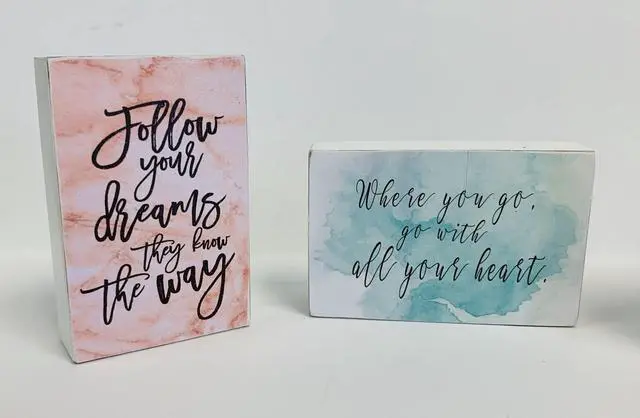 Follow
your
dreams
they know
the way
Where you go,
go with
all your heart.